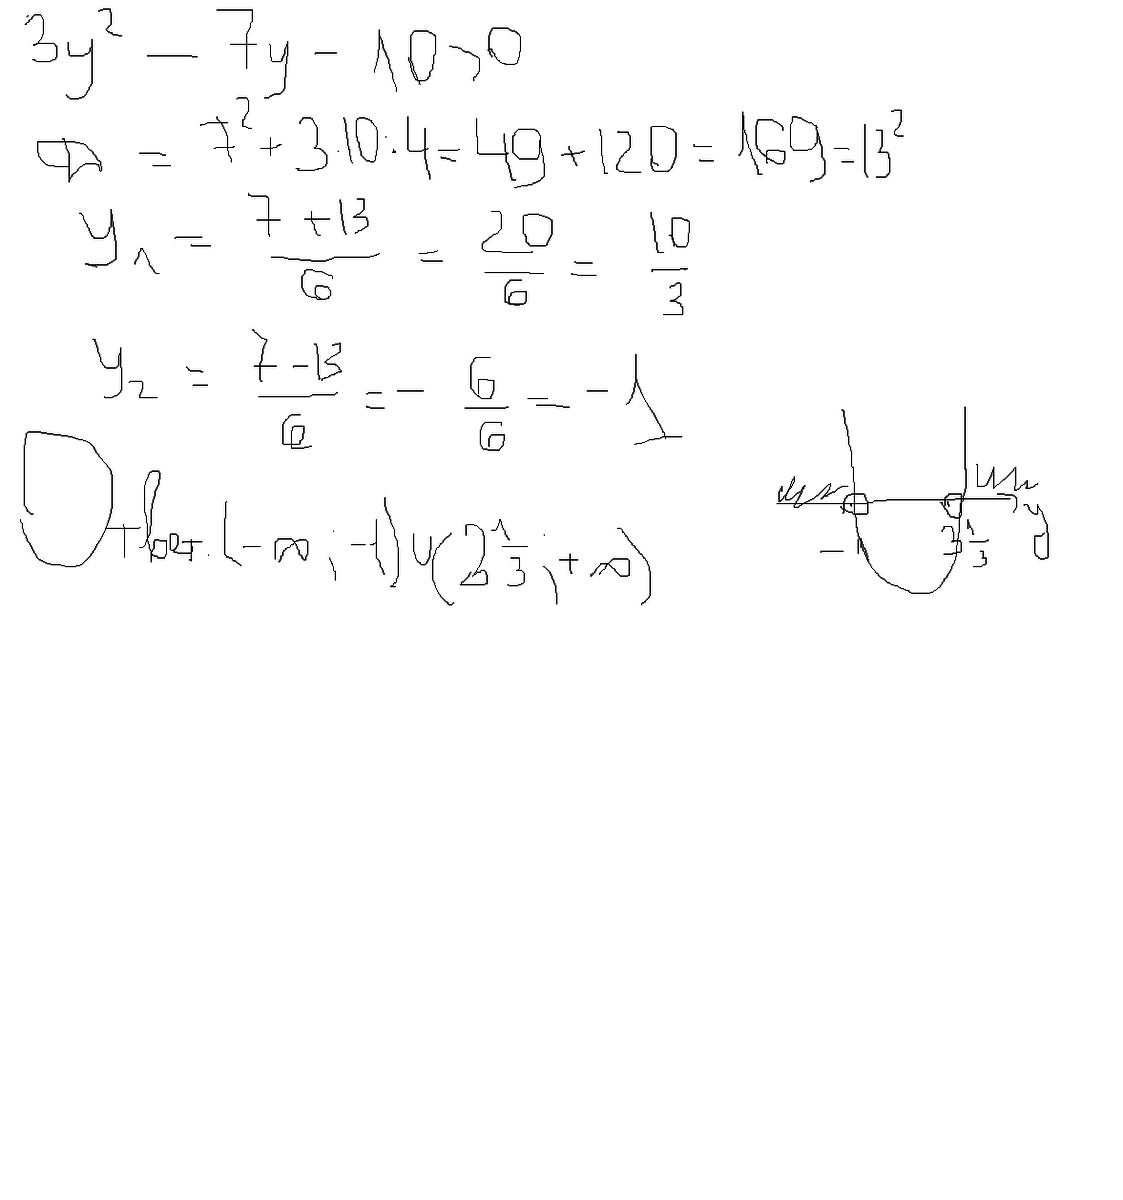 3y² - 7y - 10 > 0
D = 7² + 3·10·4 = 49 + 120 = 169 = 13²
y₁ = (7 + 13)/6 = 20/6 = 10/3
y₂ = (7 - 13)/6 = - 6/6 = - 1
(-∞; -1) ∪ (2 1/3; +∞)
-1 3 1/3 y